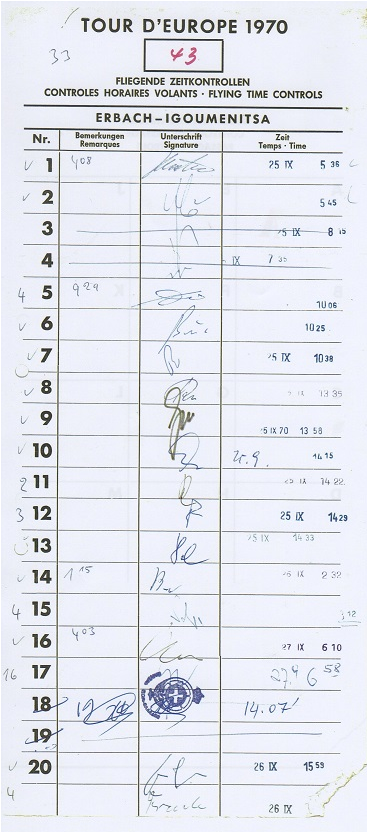 TOUR D'EUROPE 1970
33
43
FLIEGENDE ZEITKONTROLLEN
CONTROLES HORAIRES VOLANTS · FLYING TIME CONTROLS
ERBACH–IGOUMENITSA
Nr. Bemerkungen Unterschrift Zeit
Remarques Signature Temps · Time
1 408 25 IX 5 36
2 5 45
3 25 IX 8 15
4 IX 7 35
4 5 929 10 06
6 10 25
7 25 IX 10 38
8 13 35
9 25 IX 70 13 58
10 25.9. 14 15
2 11 25 IX 14 22
3 12 25 IX 14 29
13 25 IX 14 33
14 1 15 26 IX 2 32
4 15 3 12
16 403 27 IX 6 10
16 17 27.9 6 58
18 14.07
19
20 26 IX 15 59
4 26 IX